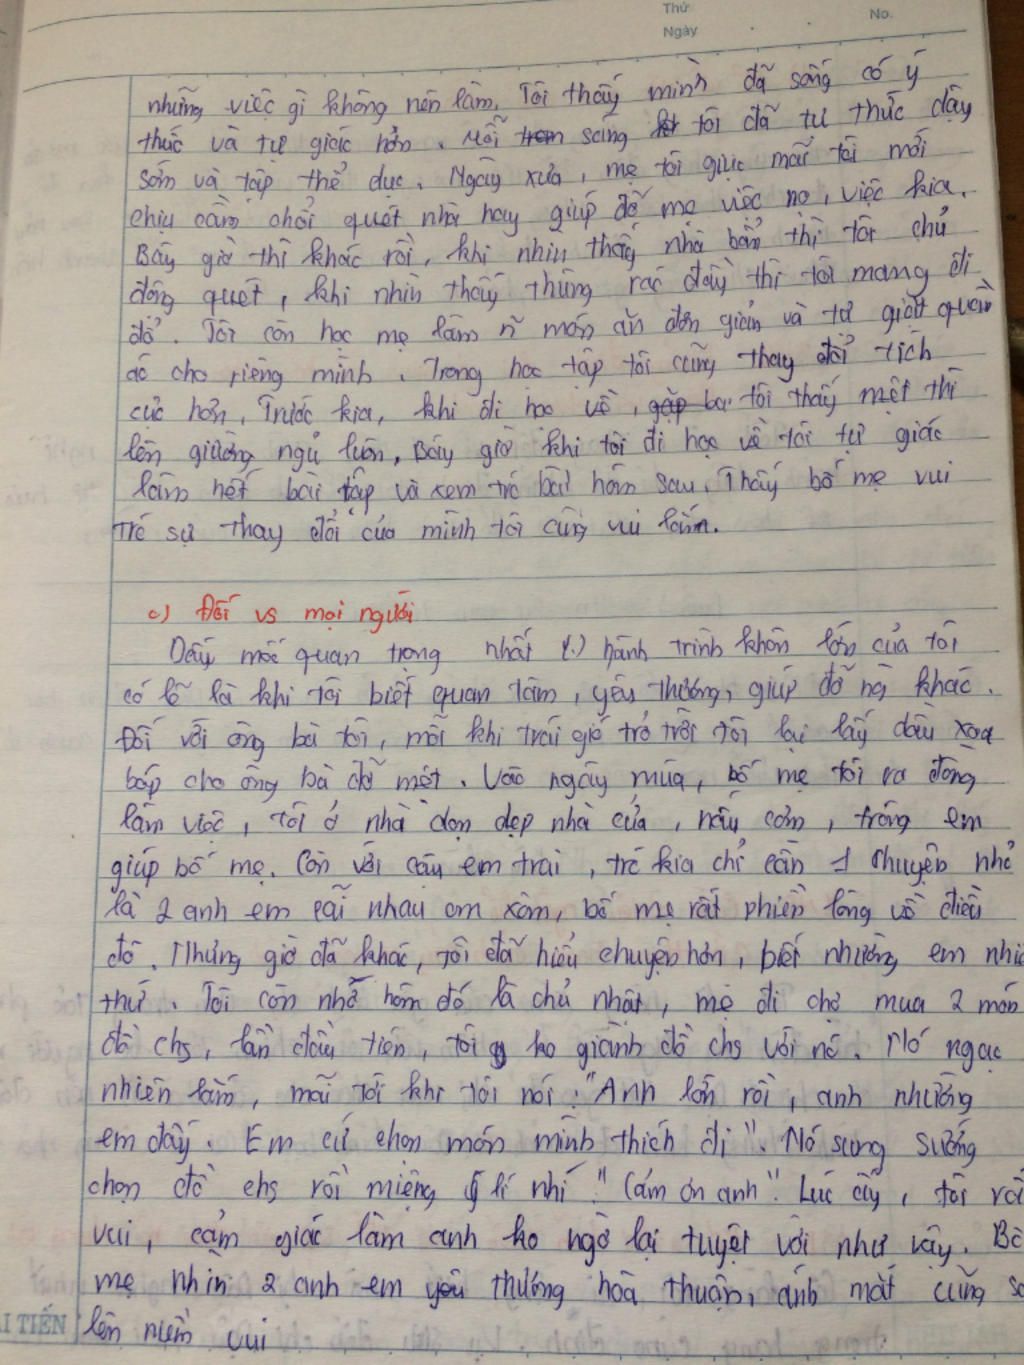 Thứ
Ngày
No.
những việc gì không nên làm. Tôi thấy mình đã sống có ý
thức và tự giác hơn. Mỗi sáng tôi đã tự thức dậy
sớm và tập thể dục. Ngày xưa, mẹ tôi giục mãi tôi mới
chịu cầm chổi quét nhà hay giúp đỡ mẹ việc nọ, việc kia.
Bây giờ thì khác rồi, khi nhìn thấy nhà bẩn thì tôi chủ
động quét, khi nhìn thấy thùng rác đầy thì tôi mang đi
đổ. Tôi còn học mẹ làm n~ món ăn đơn giản và tự giặt quần
áo cho riêng mình. Trong học tập tôi cũng thay đổi tích
cực hơn. Trước kia, khi đi học về, tôi thấy mệt thì
lên giường ngủ luôn, Bây giờ khi tôi đi học về tôi tự giác
làm hết bài tập và xem trc bài hôm sau. Thấy bố mẹ vui
trc sự thay đổi của mình tôi cũng vui lắm.
c) Đối vs mọi người
Dấu mốc quan trọng nhất (.) hành trình khôn lớn của tôi
có lẽ là khi tôi biết quan tâm, yêu thương, giúp đỡ ng khác.
Đối với ông bà tôi, mỗi khi trái gió trở trời tôi lại lấy dầu xoa
bóp cho ông bà đỡ mệt. Vào ngày mùa, bố mẹ tôi ra đồng
làm việc, tôi ở nhà dọn dẹp nhà cửa, nấu cơm, trông em
giúp bố mẹ. Còn với cậu em trai, trc kia chỉ cần 1 chuyện nhỏ
là 2 anh em cãi nhau om xòm, bố mẹ rất phiền lòng về điều
đó. Nhưng giờ đã khác, tôi đã hiểu chuyện hơn, biết nhường em nhiều
thứ. Tôi còn nhớ hôm đó là chủ nhật, mẹ đi chợ mua 2 món
đồ chs, lần đầu tiên, tôi ko giành đồ chs với nó. Nó ngạc
nhiên lắm, mãi tới khi tôi nói: "Anh lớn rồi, anh nhường
em đấy. Em cứ chọn món mình thích đi". Nó sung sướng
chọn đồ chs rồi miệng lí nhí "Cảm ơn anh". Lúc ấy, tôi rất
vui, cảm giác làm anh ko ngờ lại tuyệt vời như vậy. Bố
mẹ nhìn 2 anh em yêu thương hoà thuận, ánh mắt cũng
lên niềm vui
TIẾN